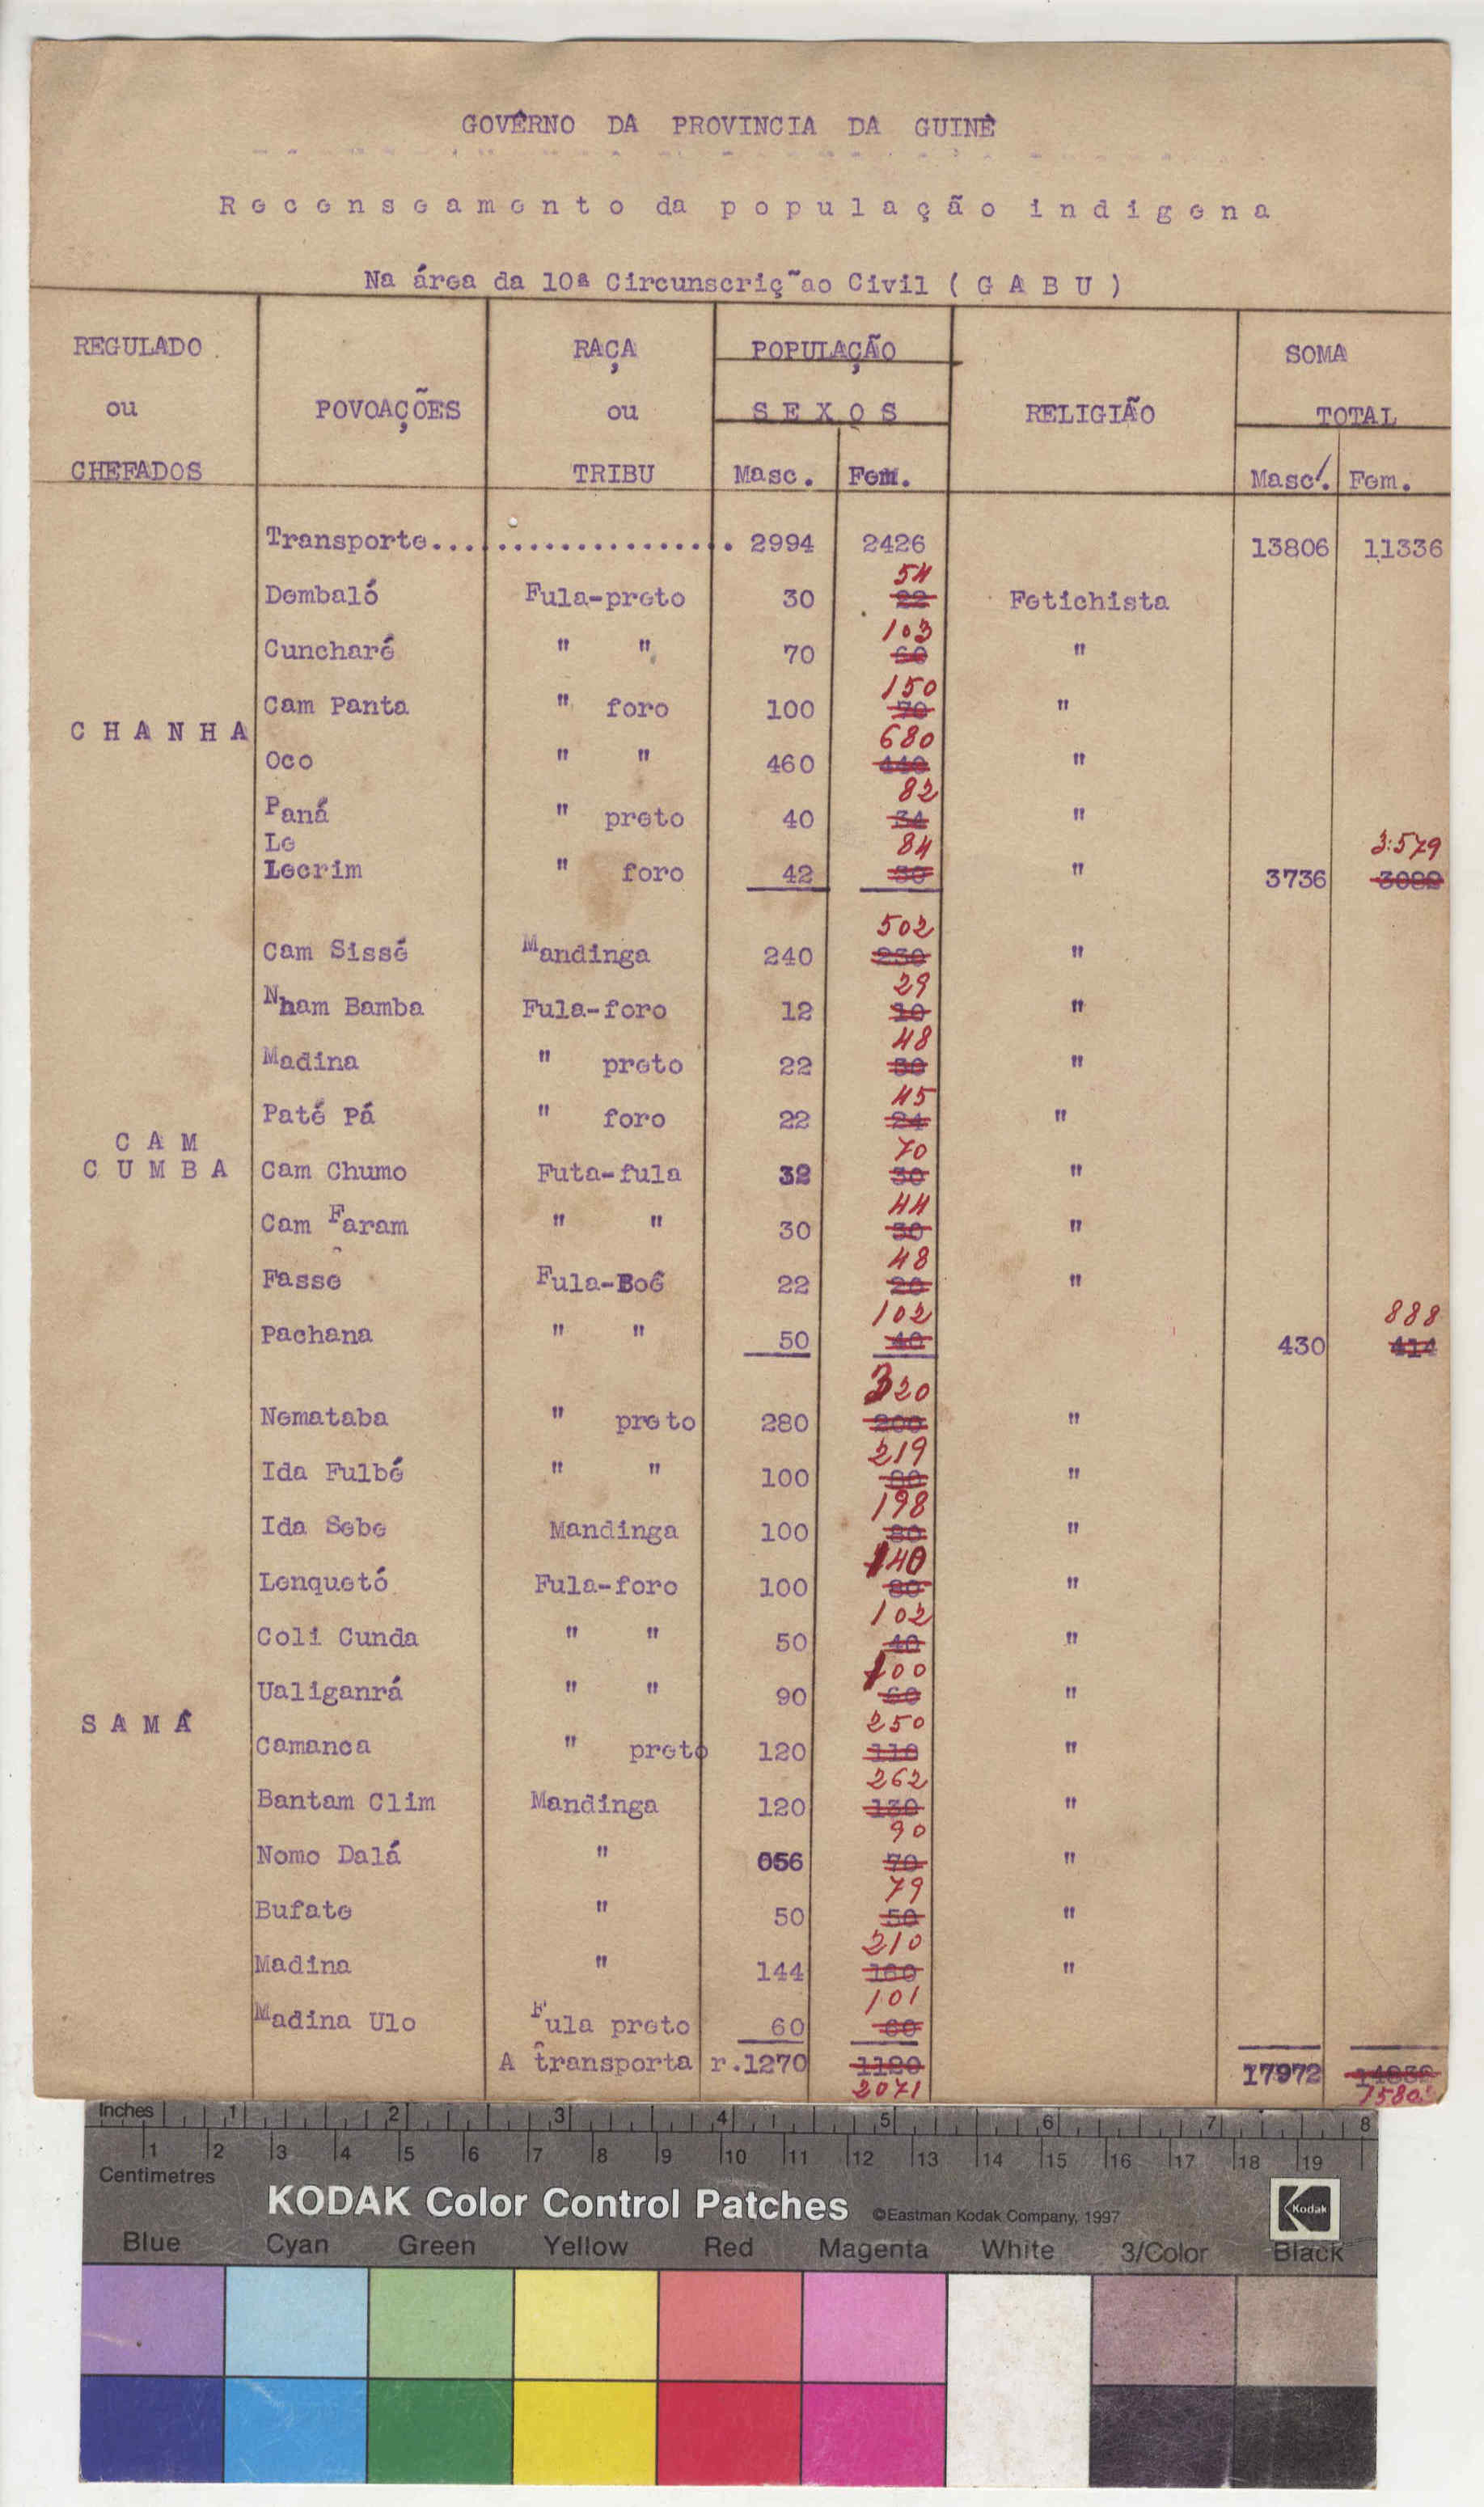 GOVÊRNO DA PROVINCIA DA GUINÊ
Recenseamento da população indigena
Na área da 10ª Circunscriç~ao Civil ( G A B U )
REGULADO ou CHEFADOS
POVOAÇÕES
RAÇA ou TRIBU
POPULAÇÃO
SEXOS
Masc. Fem.
RELIGIÃO
SOMA TOTAL
Masc. Fem.
Transporte....................... 2994 2426 13806 11336
CHANHA
Dembaló Fula-preto 30 22 54 Fetichista
Cuncharé " " 70 60 103 "
Cam Panta " foro 100 70 150 "
Oco " " 460 440 680 "
Paná " preto 40 34 82 "
Le
Lecrim " foro 42 30 84 " 3736 3082 3:579
CAM
CUMBA
Cam Sissé Mandinga 240 230 502 "
Nham Bamba Fula-foro 12 10 29 "
Madina " preto 22 30 48 "
Paté Pá " foro 22 24 45 "
Cam Chumo Futa-fula 32 30 70 "
Cam Faram " " 30 30 44 "
Fasse Fula-Boé 22 20 48 "
Pachana " " 50 40 102 430 414 888
SAMÂ
Nemataba " preto 280 200 320 "
Ida Fulbé " " 100 80 219 "
Ida Sebe Mandinga 100 80 198 "
Lenquetó Fula-foro 100 80 140 "
Coli Cunda " " 50 40 102 "
Ualiganrá " " 90 60 100 "
Camanca " preto 120 110 250 "
Bantam Clim Mandinga 120 130 262 "
Nomo Dalá " 056 70 90 "
Bufate " 50 50 79 "
Madina " 144 160 210 "
Madina Ulo Fula preto 60 60 101
A transportar.1270 1120 2071 17972
Inches 1 2 3 4 5 6 7 8
1 2 3 4 5 6 7 8 9 10 11 12 13 14 15 16 17 18 19
Centimetres
KODAK Color Control Patches ©Eastman Kodak Company, 1997 Kodak
Blue Cyan Green Yellow Red Magenta White 3/Color Black